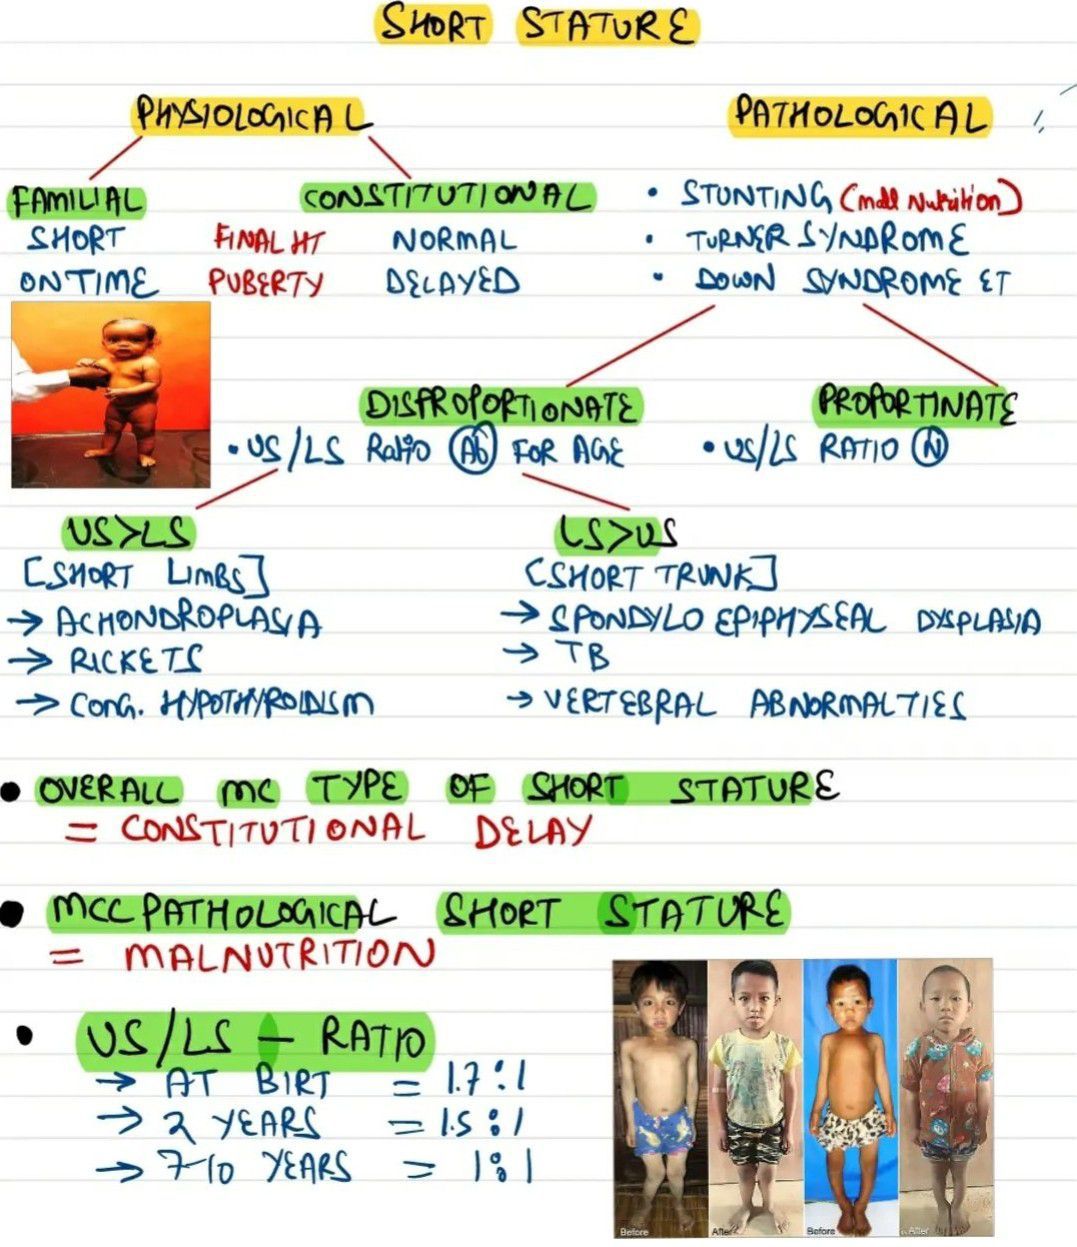 SHORT STATURE
PHYSIOLOGICAL
PATHOLOGICAL
FAMILIAL
CONSTITUTIONAL
SHORT FINAL HT NORMAL
ON TIME PUBERTY DELAYED
• STUNTING (mall Nutrition)
• TURNER SYNDROME
• DOWN SYNDROME ET
DISPROPORTIONATE
• US/LS Ratio Ab FOR AGE
PROPORTINATE
• US/LS RATIO N
US>LS
[SHORT LIMBS]
→ ACHONDROPLASIA
→ RICKETS
→ CONG. HYPOTHYROIDISM
LS>US
[SHORT TRUNK]
→ SPONDYLO EPIPHYSEAL DYSPLASIA
→ TB
→ VERTEBRAL ABNORMALTIES
• OVERALL MC TYPE OF SHORT STATURE
= CONSTITUTIONAL DELAY
• MCC PATHOLOGICAL SHORT STATURE
= MALNUTRITION
• US/LS – RATIO
→ AT BIRT = 1.7:1
→ 2 YEARS = 1.5:1
→ 7-10 YEARS = 1:1
Before After Before After